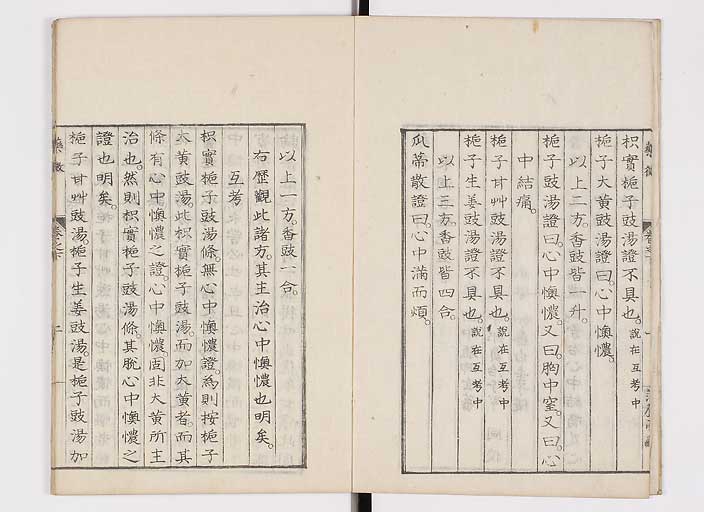 枳實梔子豉湯證不具也。說在互考中
梔子大黃豉湯證曰。心中懊憹。
以上二方。香豉皆一升。
梔子豉湯證曰。心中懊憹。又曰。胸中窒。又曰。心
中結痛。
梔子甘艸豉湯證不具也。說在互考中
梔子生姜豉湯證不具也。說在互考中
以上三方。香豉皆四合。
瓜蒂散證曰。心中滿而煩。
以上一方。香豉一合。
右歷觀此諸方。其主治心中懊憹也明矣。
互考
枳實梔子豉湯條。無心中懊憹證。為則按梔子
大黃豉湯。此枳實梔子豉湯。而加大黃者。而其
條有心中懊憹之證。心中懊憹。固非大黃所主
治也。然則枳實梔子豉湯條。其脫心中懊憹之
證也明矣。
梔子甘艸豉湯。梔子生姜豉湯。是梔子豉湯加
藥徵
卷之下
二